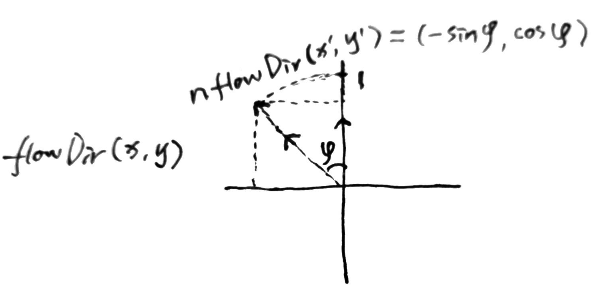 nflowDir(x', y') = (-sinφ, cosφ)
1
flowDir(x, y)
φ